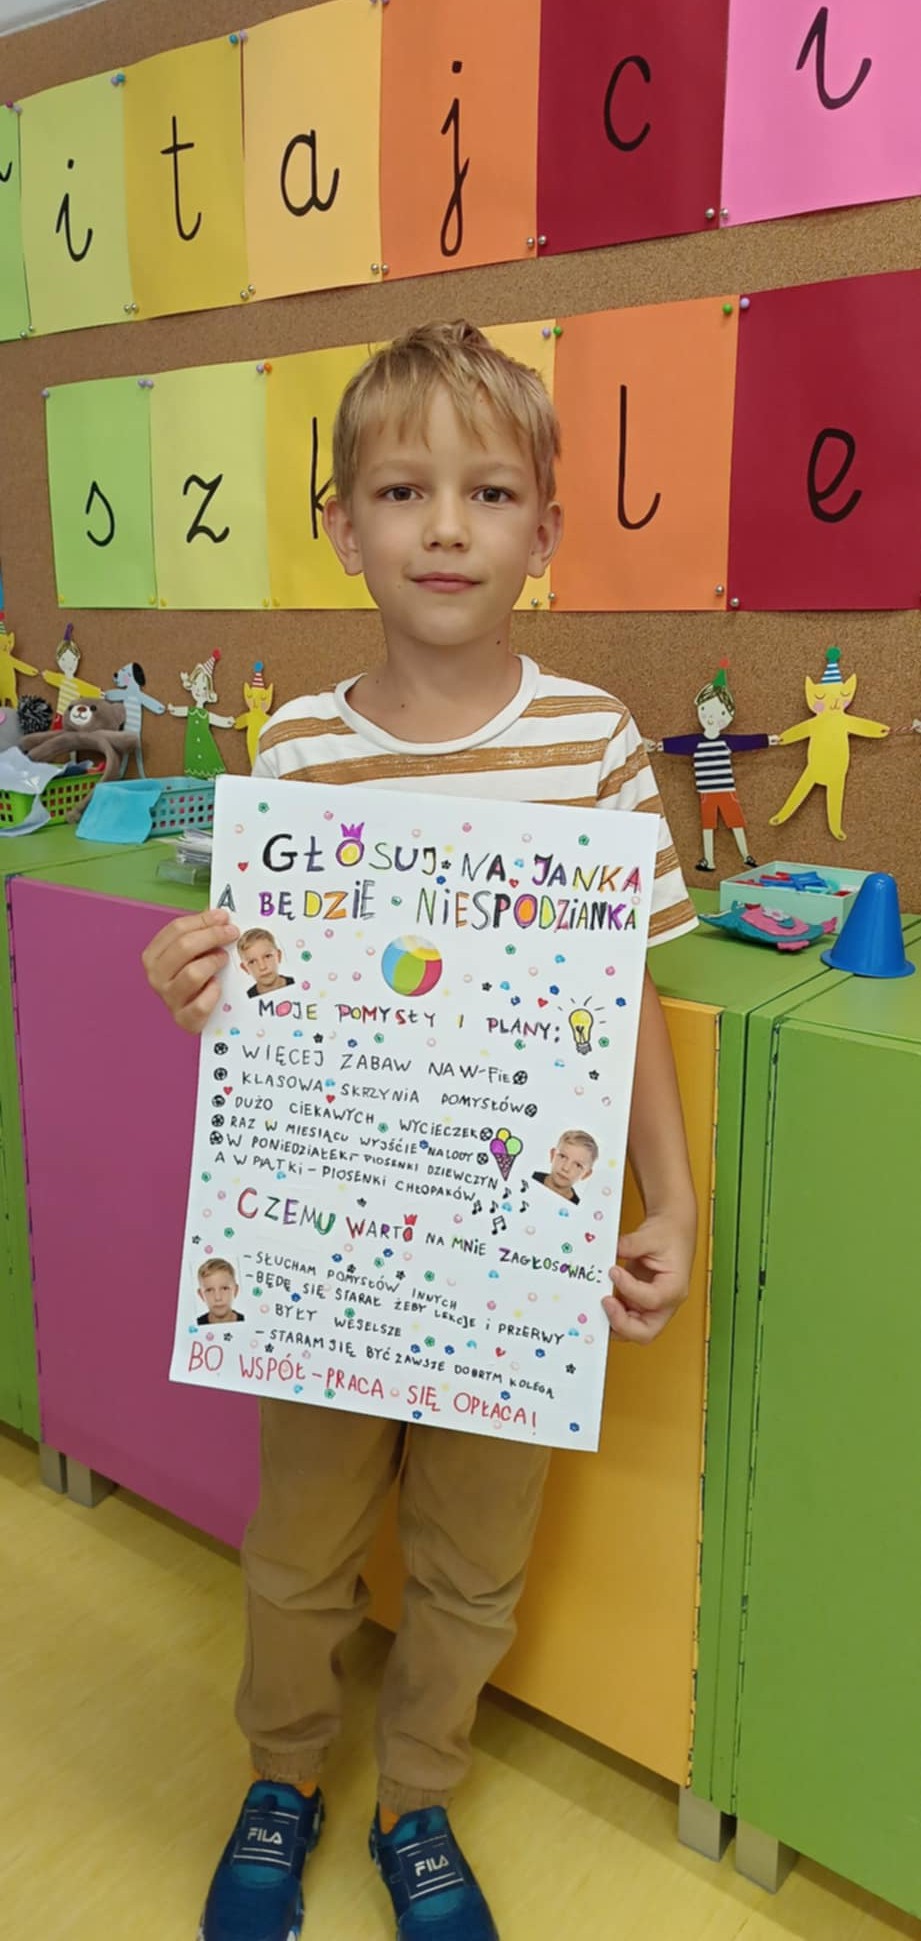 i t a j c i
s z k l e
GŁOSUJ NA JANKA
A BĘDZIE NIESPODZIANKA
MOJE POMYSŁY I PLANY:
WIĘCEJ ZABAW NA W-FIE
KLASOWA SKRZYNIA POMYSŁÓW
DUŻO CIEKAWYCH WYCIECZEK
RAZ W MIESIĄCU WYJŚCIE NA LODY
W PONIEDZIAŁEKI - PIOSENKI DZIEWCZYN
A W PIĄTKI - PIOSENKI CHŁOPAKÓW
CZEMU WARTO NA MNIE ZAGŁOSOWAĆ:
- SŁUCHAM POMYSŁÓW INNYCH
- BĘDĘ SIĘ STARAŁ ŻEBY LEKCJE i PRZERWY
BYŁY WESELSZE
- STARAM SIĘ BYĆ ZAWSZE DOBRYM KOLEGĄ
BO WSPÓŁ-PRACA SIĘ OPŁACA!
FILA
FILA